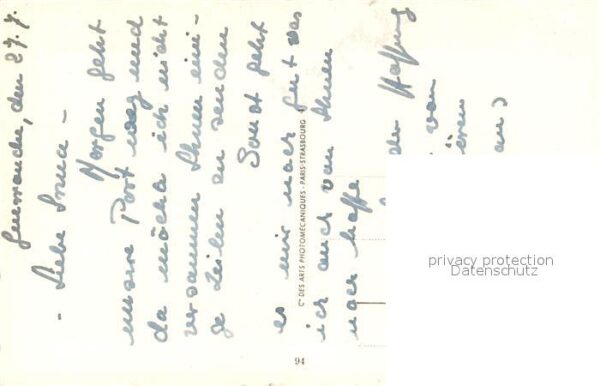 den 27.7.
- Liebe
Morgen geht
unsere Post weg und
da möchte ich nicht
versäumen Ihnen eini-
ge Zeilen zu senden
Sonst geht
es mir noch gut was
ich auch von Ihnen
noch hoffe
Cie DES ARTS PHOTOMÉCANIQUES - PARIS-STRASBOURG
der Hoffnung
von
94
privacy protection
Datenschutz